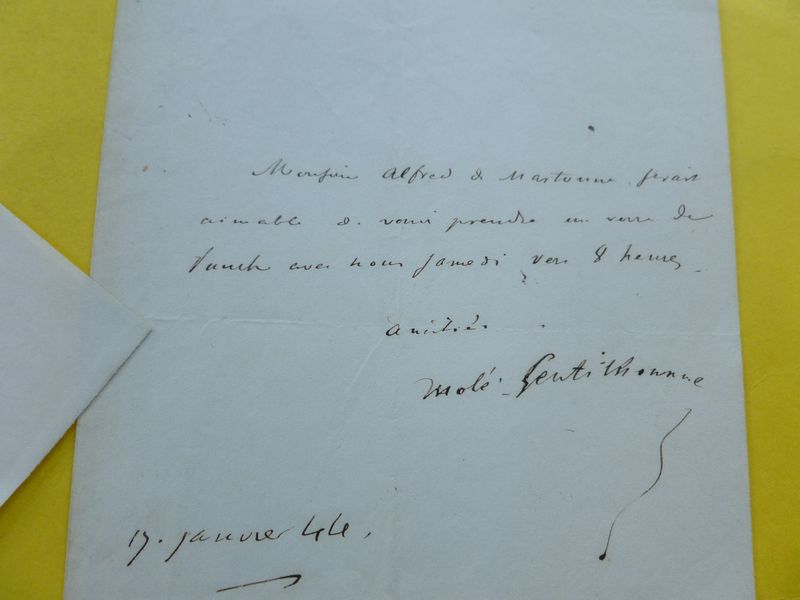 Monsieur Alfred de Martonne serait
aimable de venir prendre un verre de
Punch avec nous samedi vers 8 heures
amitiés
Molé-Gentilhomme
17. janvier 44.